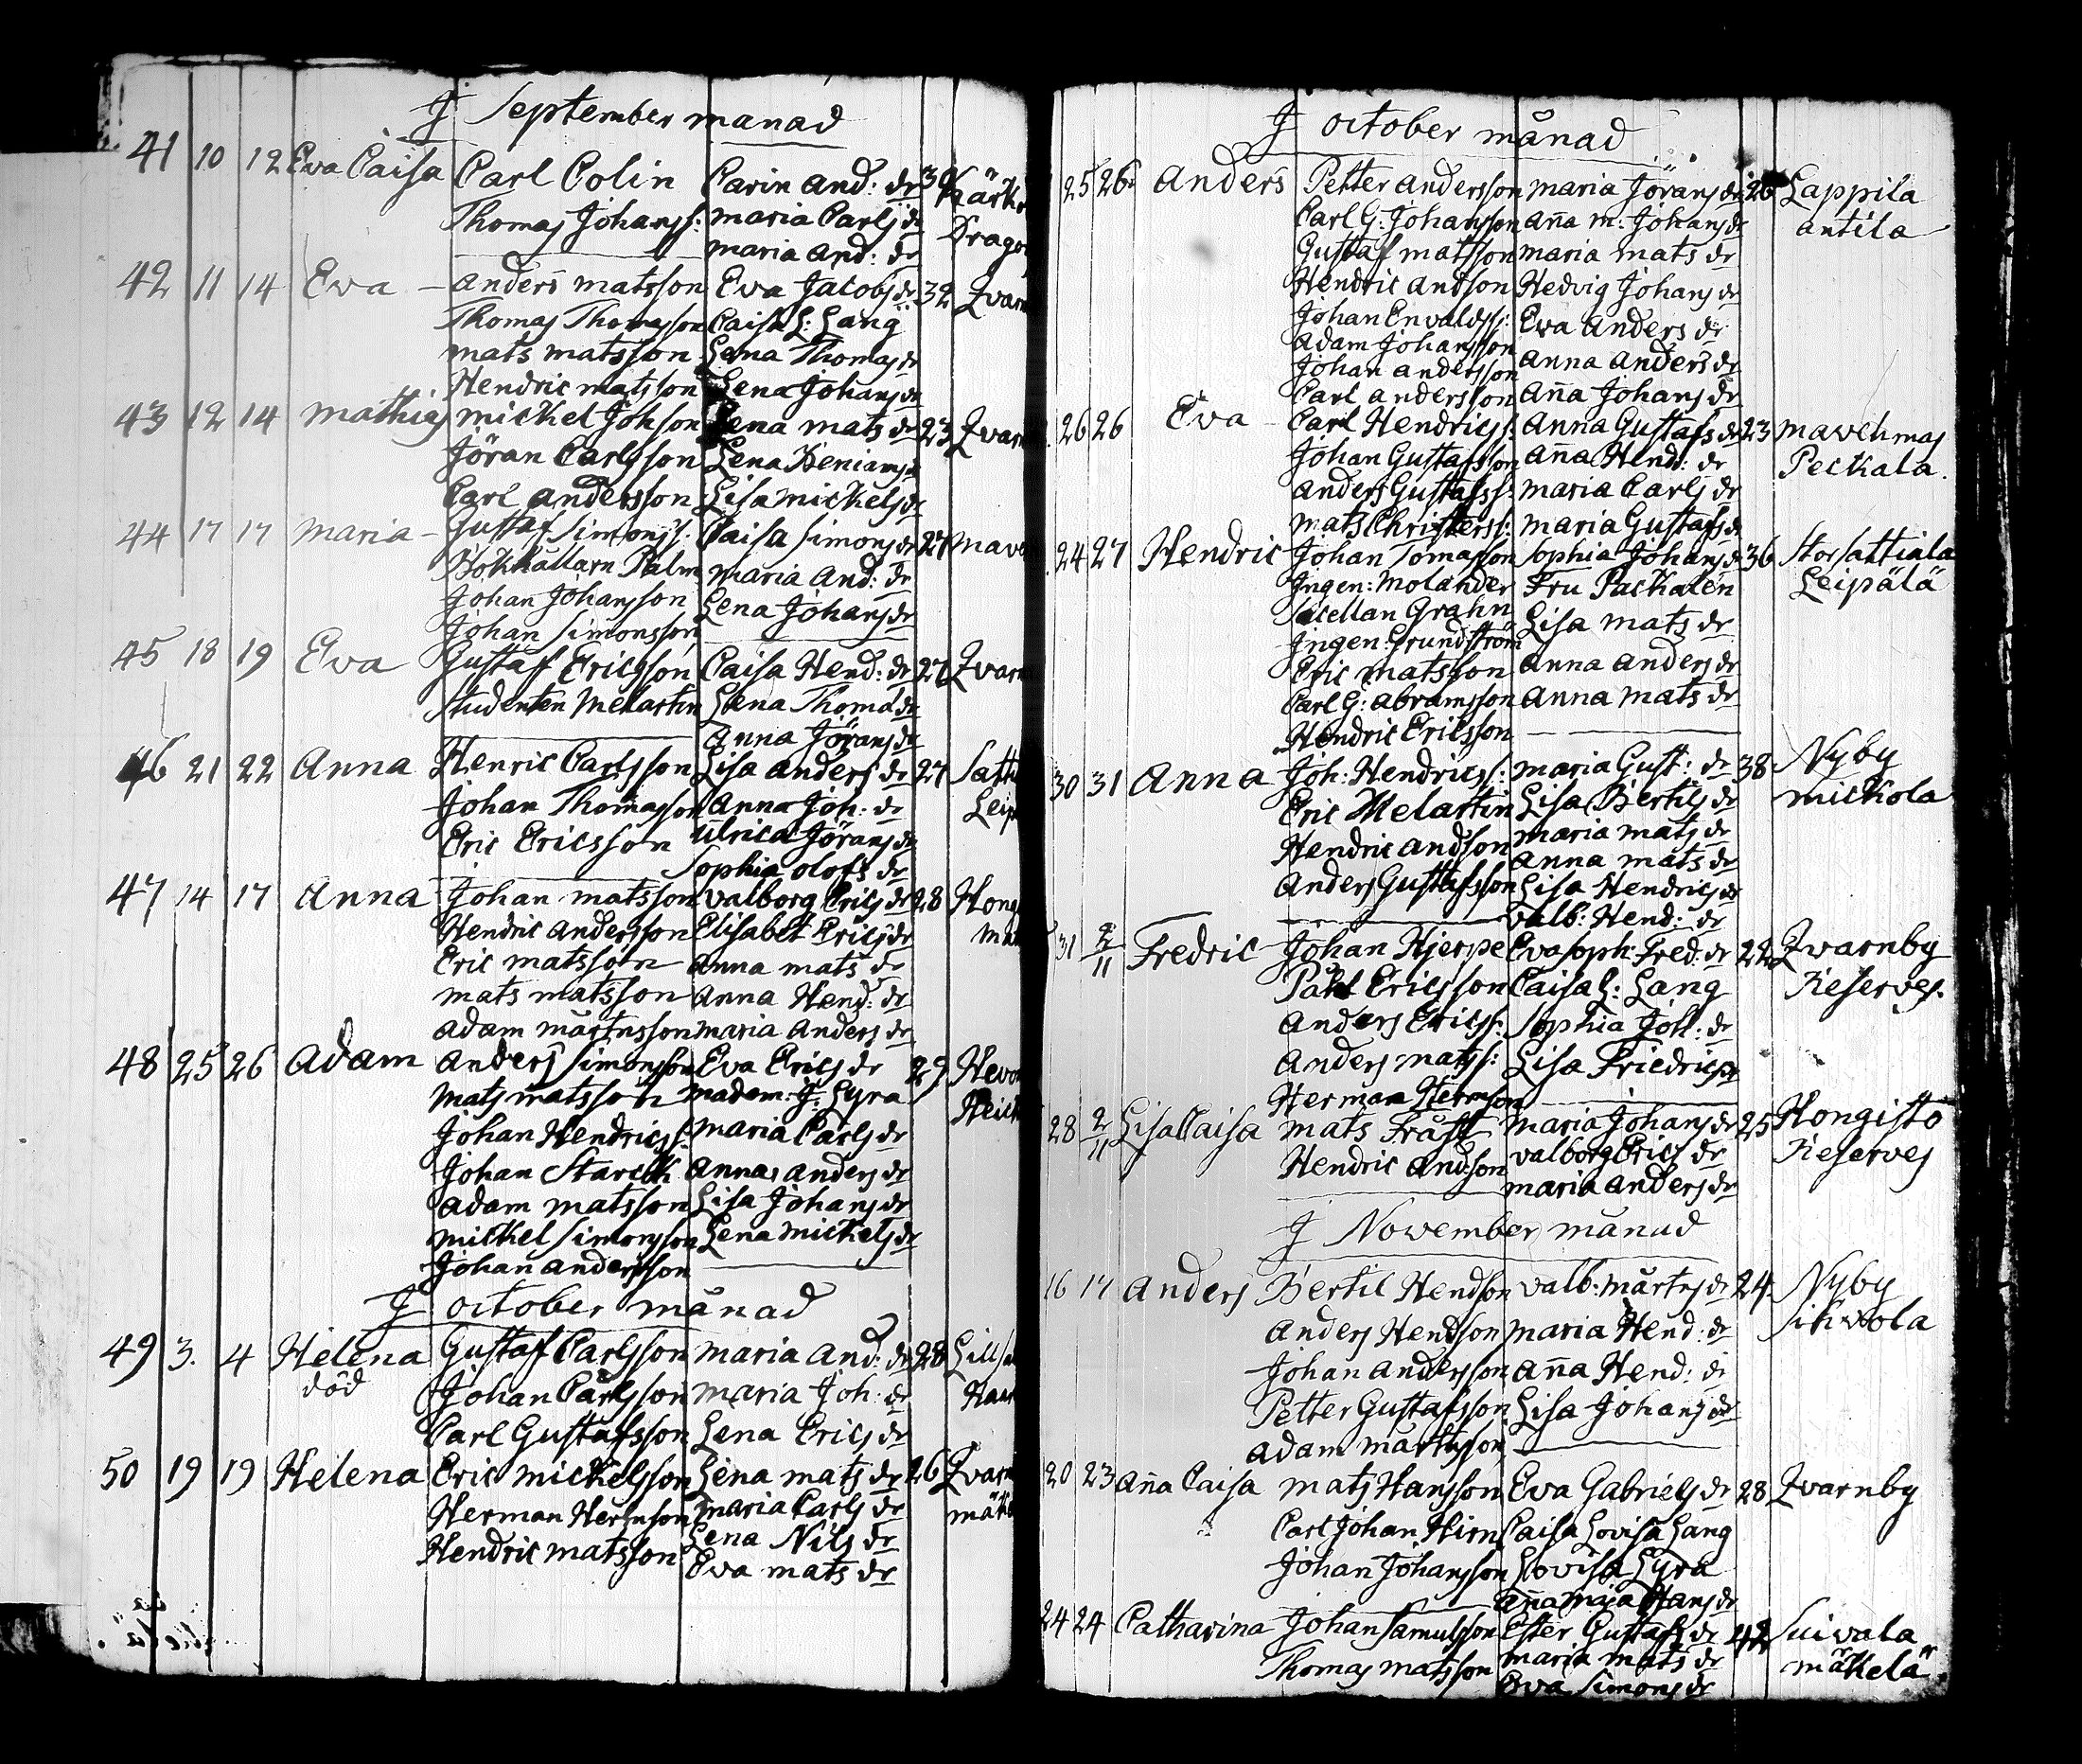 J September månad
41 10 12 Eva Caisa Carl Colin Carin And: dr 30 Kärk
Thomas Johanss: Maria Carls dr Drago
Maria And: dr
42 11 14 Eva – Anders Matsson Eva Jacobs dr 32 Qvarn
Thomas Thomasson Caisa L: Lang
Mats Matsson Lena Thomas dr
Hendric Matsson Lena Johans dr
43 12 14 Mathias Mickel Johsson Lena Mats dr 23 Qvarn
Jöran Carlsson Lena Beniams dr
Carl Andersson Lisa Mickels dr
44 17 17 Maria – Gustaf Simonss: Caisa Simons dr 27 Mav
Bokhållarn Palm Maria And: dr
Johan Johansson Lena Johans dr
Johan Simonsson
45 18 19 Eva Gustaf Ericsson Caisa Hend: dr 27 Qvarn
Studenten Melartin Lena Thoma dr
Anna Jörans dr
46 21 22 Anna Henric Carlsson Lisa Anders dr 27 Satti
Johan Thomasson Anna Joh: dr Leip
Eric Ericsson Ulrica Jörans dr
Sophia Olofs dr
47 14 17 Anna Johan Matsson Valborg Erics dr 28 Hong
Hendric Andersson Elisabet Erics dr
Eric Matsson Anna Mats dr
Mats Matsson Anna Hend: dr
Adam Mårtnsson Maria Anders dr
48 25 26 Adam Anders Simonsson Eva Erics dr 29 Hevo
Mats Matsson Madem: J: Lyra Heick
Johan Hendricss: Maria Carls dr
Johan Starck Anna Anders dr
Adam Matsson Lisa Johans dr
Mickel Simonsson Lena Mickels dr
Johan Andersson
J October månad
49 3. 4 Helena Gustaf Carlsson Maria And: dr 28 Lill
död Johan Carlsson Maria Joh: dr
Carl Gustafsson Lena Erics dr
50 19 19 Helena Eric Mickelsson Lena Mats dr 26 Qvarn
Herman Hermson Maria Carls dr mäk
Hendric Matsson Lena Nils dr
Eva Mats dr
J October månad
25 26 Anders Petter Andersson Maria Jörans dr 26 Lappila
Carl G: Johansson Aña M: Johans dr Antila
Gustaf Matsson Maria Mats dr
Hendric Andson Hedvig Johans dr
Johan Envaldss: Eva Anders dr
Adam Johansson
Johan Andersson Anna Anders dr
Carl Andersson Aña Johans dr
26 26 Eva Carl Hendricss: Anna Gustafs dr 23 Mavehmas
Johan Gustafsson Aña Hend: dr Peckala.
Anders Gustafss: Maria Carls dr
Mats Christerss: Maria Gustafs dr
24 27 Hendric Johan Tomasson Sophia Johans dr 36 Stor Sattiala
Ingen: Molander Fru Packalén Leipälä
Sacellan Grahn Lisa Mats dr
Ingen: Grundström
Eric Matsson Anna Anders dr
Carl G: Abramsson Anna Mats dr
Hendric Ericsson
30 31 Anna Joh: Hendricss: Maria Gust: dr 38 Nyby
Eric Melartin Lisa Bertils dr Mickola
Hendric Andson Maria Mats dr
Anna Mats dr
Anders Gustafsson Lisa Hendrics dr
Valb: Hend: dr
31 2/11 Fredric Johan Hjerpe Eva Soph: Fred: dr 22 Qvarnby
Påhl Ericsson Caisa L: Lang Reserves.
Anders Ericss: Sophia Joh: dr
Anders Matss: Lisa Friedrics dr
Herman Hermson
28 2/11 Lisa Caisa Mats Frast Maria Johans dr 25 Hongisto
Hendric Andson Valborg Erics dr Reserves
Maria Anders dr
J November månad
16 17 Anders Bertil Hendson Valb: Mårtns dr 24. Nyby
Anders Hendson Maria Hend: dr Sihvola
Johan Andersson Aña Hend: dr
Petter Gustafsson Lisa Johans dr
Adam Mårtnsson
20 23 Aña Caisa Mats Hansson Eva Gabriels dr 28 Qvarnby
Carl Johan Hirn Caisa Lovisa Lang
Johan Johansson Lovisa Lyra
Aña Maja Hans dr
24 24 Catharina Johan Samulsson Ester Gustafs dr 42 Suivala
Thomas Matsson Maria Mats dr Mäkelä
Eva Simons dr